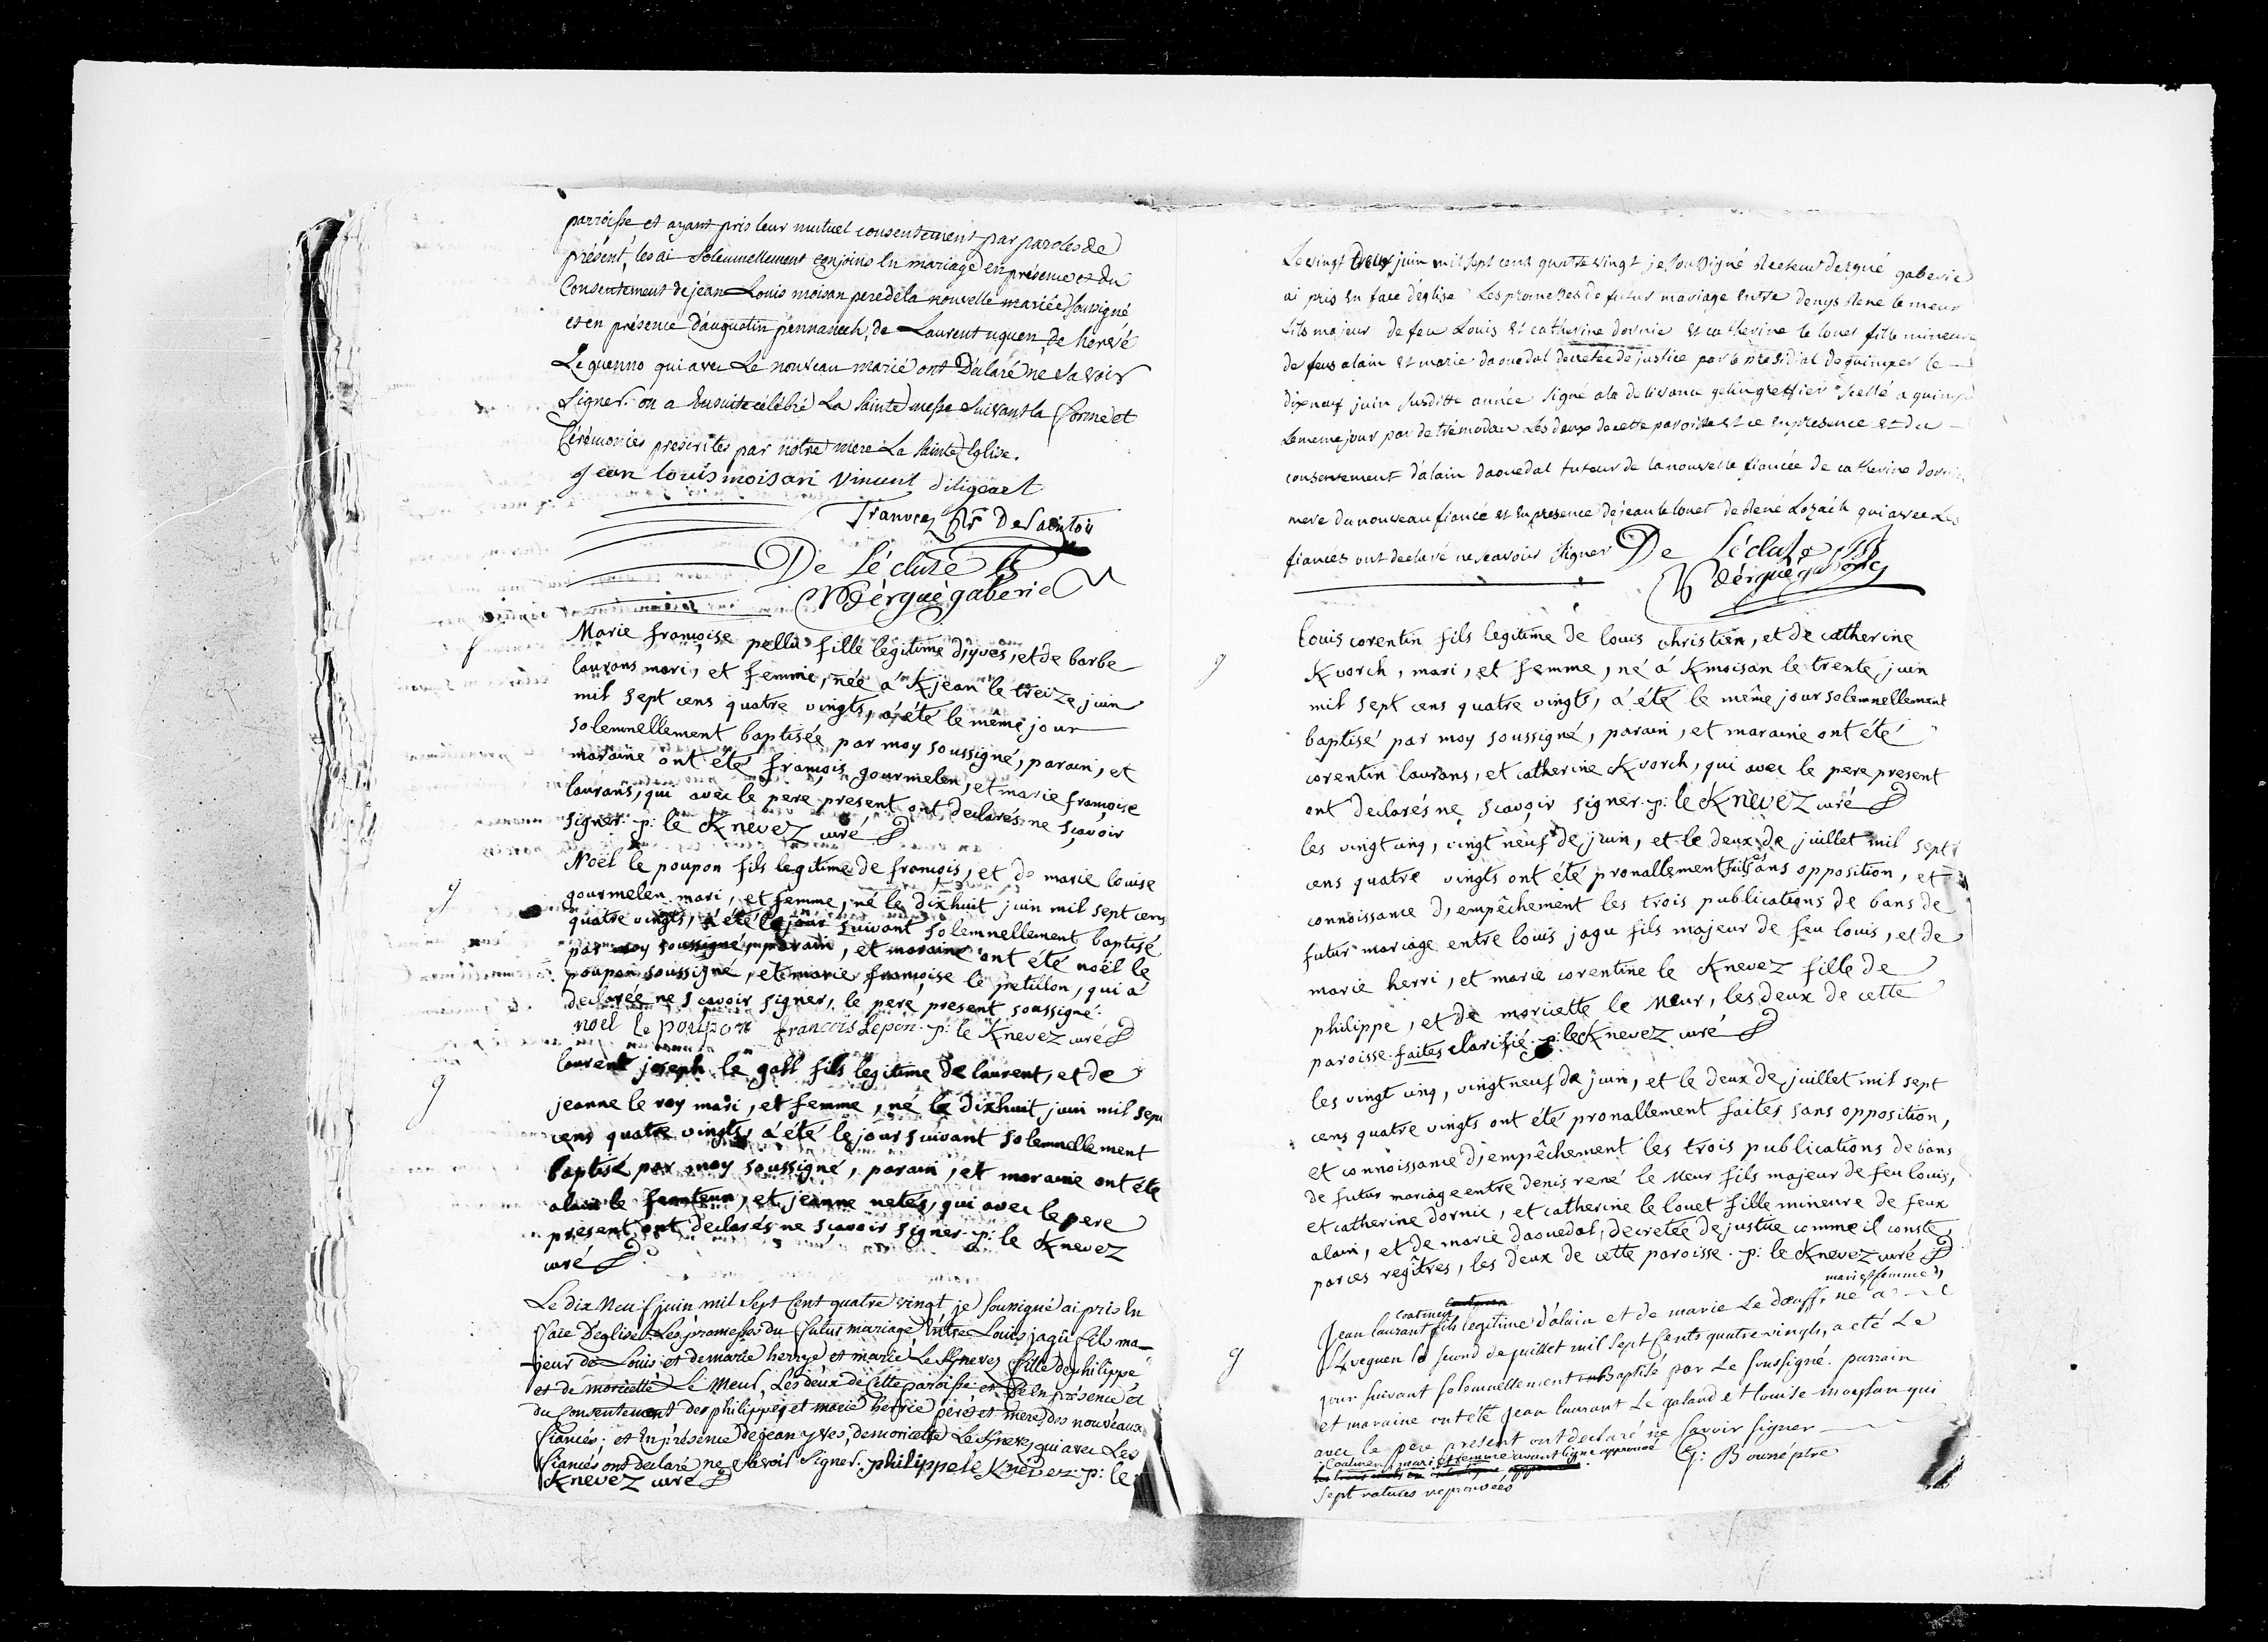 parroisse et ayant pris leur mutuel consentement par paroles de
présent, les ai Solennellement conjoins En mariage en présence et du
Consentement de jean Louis moisan pere de la nouvelle mariée soussigné
et en présence d'augustin pennanech, de Laurent uguen, de hervé
Le guenno qui avec Le nouveau marié ont Déclaré ne Savoir
Signer. on a Ensuite célébré La Sainte messe Suivant la forme et
Cérémonies prescrites par notre mere La Sainte Eglise.
jean louis moisan Vincent
De Lécluse
dérgué gaberic
Marie françoise pellu fille legitime d'yves, et de barbe
laurans mari, et femme, née á Kjean le treize juin
mil sept cens quatre vingts, a été le même jour
solemnellement baptisée par moy soussigné, parain, et
maraine ont été françois gourmelen, et marie françoise
laurans, qui avec le pere present ont declarés ne sçavoir
signer. p: le Knevez curé
Noël le poupon fils legitime de françois, et de marie louise
gourmelen mari, et femme, né le dixhuit juin mil sept cens
quatre vingts, á été le jour suivant solemnellement baptisé
par moy soussigné, parain, et maraine ont été noël le
poupon soussigné, et marie françoise le petillon, qui á
declarée ne sçavoir signer, le pere present soussigné.
noel le poupon francois Lepon. p: le Knevez curé
laurent joseph le gall fils legitime de laurent, et de
jeanne le roy mari, et femme, né le dixhuit juin mil sept
cens quatre vingts, á été le jour suivant solemnellement
baptisé par moy soussigné, parain, et maraine ont été
alain le feunteun, et jeanne netés, qui avec le pere
present ont declarés ne sçavoir signer. p: le Knevez
curé
Le dix Neuf juin mil Sept Cent quatre vingt, je Soussigné ai pris En
face D'eglise Les promesses du futur mariage, Entre Louis jagu fils ma-
-jeur de Louis et de marie herrye et marie Le Knevez fille de philippe
et de moricette Le Meur, Les deux de Cette paroisse et Ce En présence et
du Consentement des philippe, et marie herrie pere et mere des nouveaux
fiancés; et En présence de jean yves, de moricette Le Knevez qui avec Les
fiancés ont declaré ne Savoir Signer. philippe le Knevez. p: le
Knevez curé
Le vingt deux juin mil sept cens quatre vingt je soussigné Recteur d'ergué gaberic
ai pris en face d'eglise Les promesses de futur mariage entre denys René le meur
fils majeur de feu Louis et catherine dornic et catherine le louet fille mineure
de feus alain et marie daouedal decretée de justice par le presidial de quimper le
dix neuf juin susditte année signé greffier scellé a quimper
le meme jour par de trémodan Les deux de cette paroisse et ce en presence et du
consentement d'alain daouedal tuteur de la nouvelle fiancée de catherine dornic
mere du nouveau fiancé et en presence de jean le louet de René Lozach qui avec Les
fiancés ont declaré ne scavoir signer De Lécluse
dérgué gaberic
louis corentin fils legitime de louis christien, et de catherine
Kvorch, mari, et femme, né á Kmoisan le trente juin
mil sept cens quatre vingts, á été le même jour solemnellement
baptisé par moy soussigné, parain, et maraine ont été
corentin laurans, et catherine Kvorch, qui avec le pere present
ont declarés ne sçavoir signer. p: le Knevez curé
les vingt cinq, vingt neuf de juin, et le deux de juillet mil sept
cens quatre vingts ont été pronallement faites sans opposition, et
connoissance d'empêchement les trois publications de bans de
futur mariage entre louis jagu fils majeur de feu louis, et de
marie herri, et marie corentine le Knevez fille de
philippe, et de moricette le Meur, les deux de cette
paroisse. faites clarifié. p: le Knevez curé
les vingt cinq, vingt neuf de juin, et le deux de juillet mil sept
cens quatre vingts ont été pronallement faites sans opposition,
et connoissance d'empêchement les trois publications de bans
de futur mariage entre denis rené le Meur fils majeur de feu louis,
et catherine dornic, et catherine le louet fille mineure de feux
alain, et de marie daouedal, decretée de justice comme il conste
par ces regîtres, les deux de cette paroisse. p: le Knevez curé
mari et femme
Coatmen
Jean laurant fils legitime d'alain et de marie Le dœuff, né a
Kveguen le second de juillet mil Sept Cents quatre vingts, a eté Le
jour suivant solemnellement Baptisé par Le soussigné. parrain
et maraine ont été Jean laurant Le galand et louise moysan qui
avec le pere present ont declaré ne Savoir signer
Coatmen mari et femme avant ligne approuvé G: Borné ptre
Sept ratures reprouvées